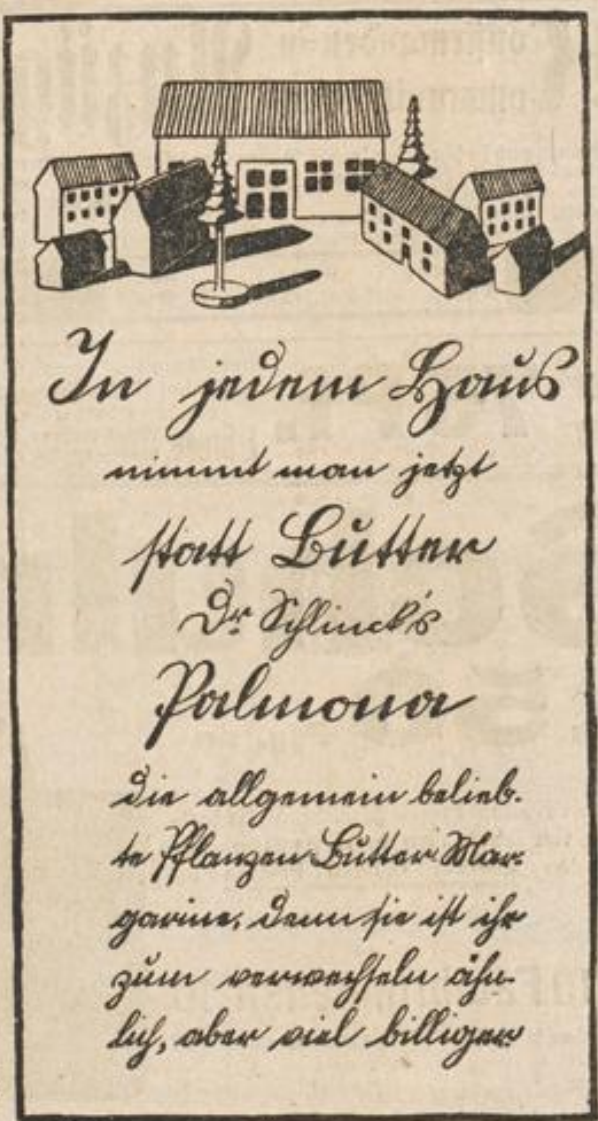 In jedem Haus
nimmt man jetzt
statt Butter
Dr. Schlinck's
Palmona
die allgemein belieb-
te Pflanzen-Butter-Mar-
garine; denn sie ist ihr
zum verwechseln ähn-
lich, aber viel billiger